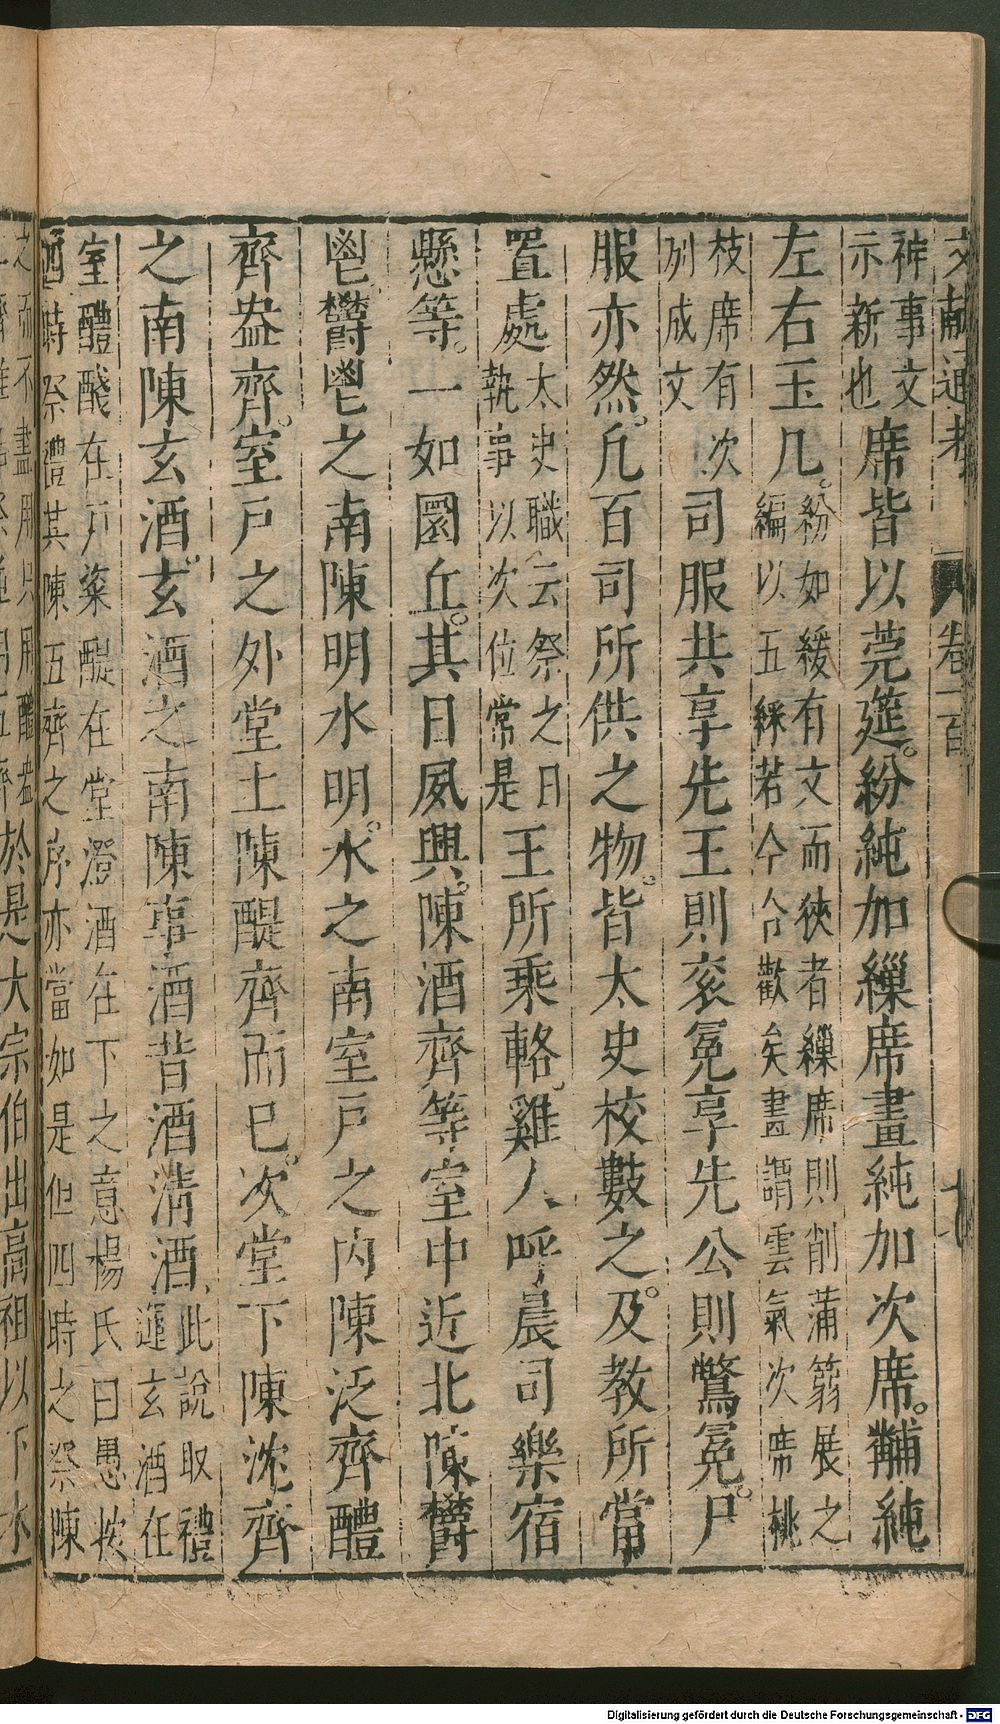 文獻通考 卷一百
神事文
示新也
席皆以莞筵。紛純加繅席畫純加次席。黼純
左右玉几。
紛如綬有文而狹者繅席則削蒲蒻展之
編以五綵若今合歡矣畫謂雲氣次席桃
枝席有次
列成文
司服共享先王則衮冕享先公則鷩冕。尸
服亦然。凡百司所供之物。皆太史校數之。及教所當
置處
太史職云祭之日
執事以次位常是
王所乘輅。雞人呼晨司樂宿
懸等。一如圜丘。其日夙興。陳酒齊等室中近北陳欝
鬯欝鬯之南陳明水明。水之南室戸之内陳泛齊醴
齊盎齊。室戸之外堂上陳醍齊而已。次堂下陳沈齊
之南陳玄酒。玄酒之南陳事酒昔酒清酒
此說取禮
運玄酒在
室醴醆在戸粢醍在堂澄酒在下之意楊氏曰愚按
酒時祭禮其陳五齊之序亦當如是但四時之祭陳
之而不盡用只用醴盎
於是大宗伯出高祖以下木
Digitalisierung gefördert durch die Deutsche Forschungsgemeinschaft - DFG